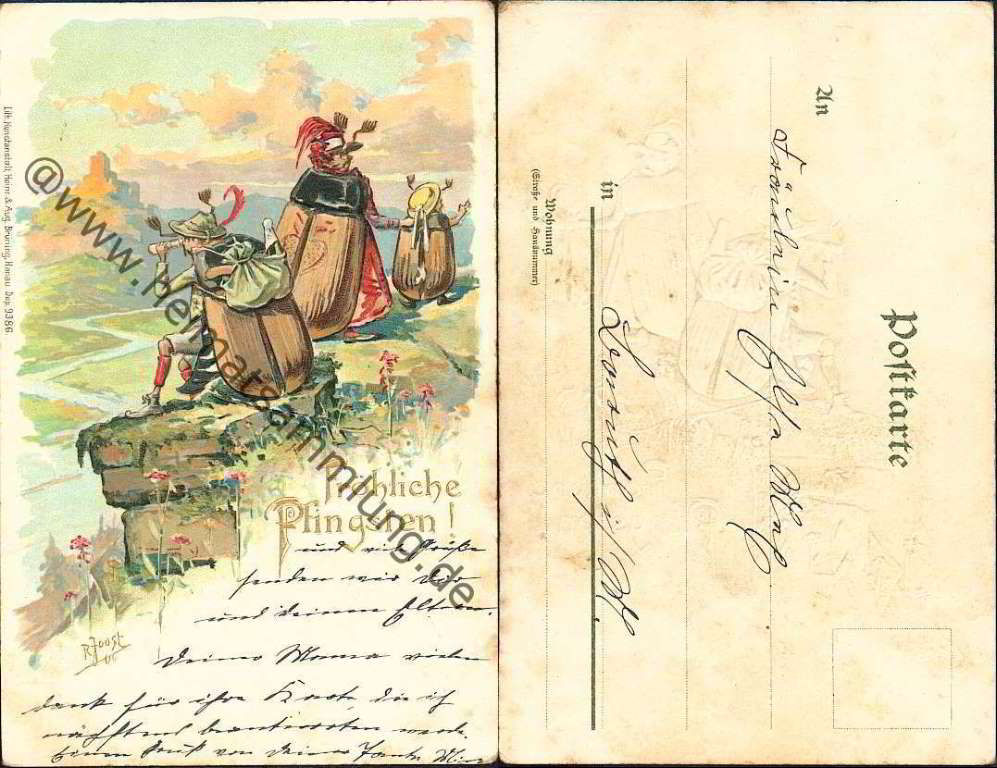 Lith. Kunstanstalt, Heinr. & Aug. Brüning, Hanau Dep. 9386.
@www.heimatsammlung.de
Fröhliche
Pfingsten!
und viele Grüße
senden wir Dir
und deinen Eltern.
Deiner Mama vielen
dank für ihre Karte, die ich
nächstens beantworten werde.
Einen Gruß von Deiner Tante
R. Joost
Postkarte
An
Fräulein Elsa
in
Wohnung
(Straße und Hausnummer)